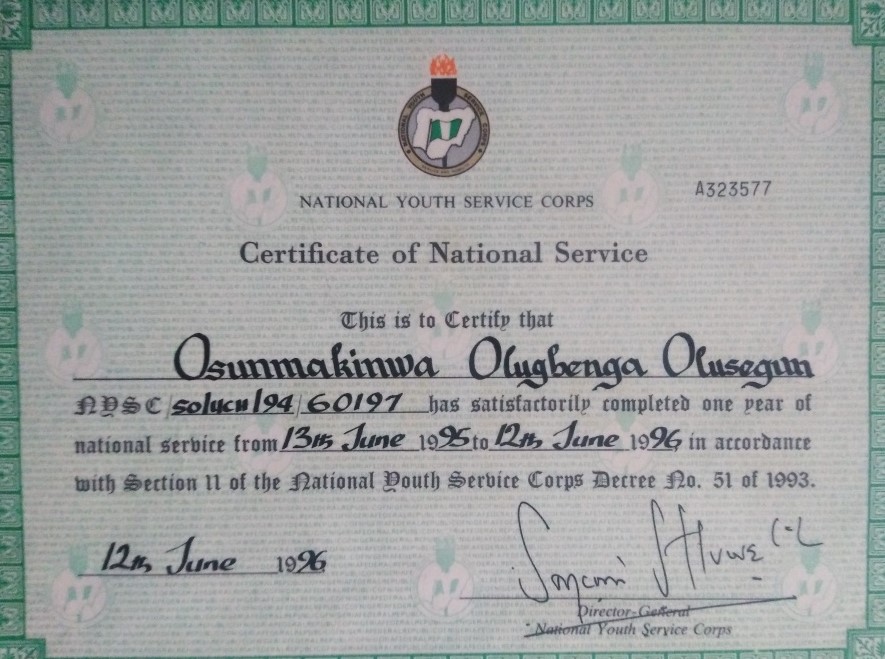 NATIONAL YOUTH SERVICE CORPS
A323577
Certificate of National Service
This is to Certify that
Osunmakinwa Olugbenga Olusegun
NYSC/solucn/94/60197 has satisfactorily completed one year of
national service from 13th June 1995 to 12th June 1996 in accordance
with Section 11 of the National Youth Service Corps Decree No. 51 of 1993.
12th June 1996
Director-General
National Youth Service Corps